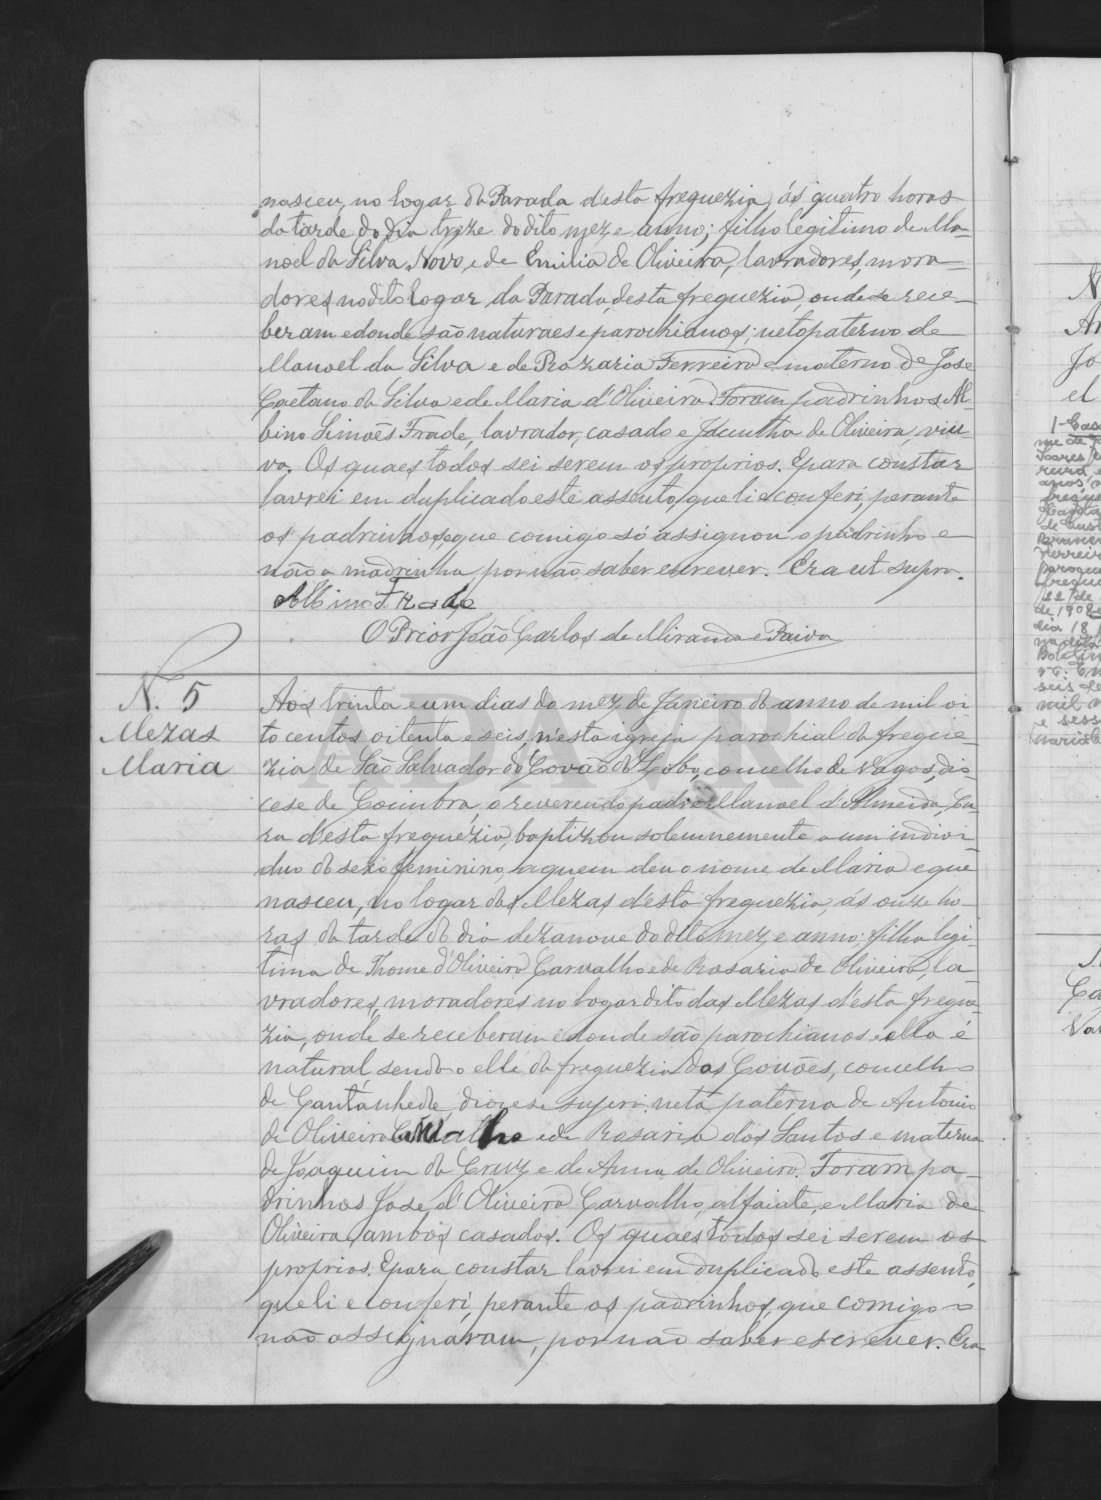 nasceu, no logar da Parada d'esta freguezia, ás quatro horas
da tarde do dia treze do dito mez e anno; filho legitimo de Ma-
noel da Silva Novo, e de Emilia de Oliveira, lavradores, mora-
dores no dito logar da Parada, desta freguezia, onde se rece-
beram e donde são naturaes e parochianos; neto paterno de
Manoel da Silva e de Rozaria Ferreira e materno de Jose
Caetano da Silva e de Maria d'Oliveira. Foram padrinhos Al-
bino Simões Frade, lavrador, casado e Jacintha de Oliveira, viu-
va. Os quaes todos sei serem os proprios. E para constar
lavrei em duplicado este assento, que li e conferi, perante
os padrinhos, que comigo só assignou o padrinho e
não a madrinha por não saber escrever. Era ut supra.
Albino Frade
O Prior João Carlos de Miranda e Paiva
N. 5
Mezas
Maria
Aos trinta e um dias do mez de Janeiro do anno de mil oi
to centos oitenta e seis, n'esta igreja parochial da fregue-
zia de São Salvador do Covão do Lobo, concelho de Vagos, dio-
cese de Coimbra, o reverendo padre Manoel d'Almeida, Cu-
ra d'esta freguezia, baptizou solemnemente a um indivi-
duo do sexo feminino, a quem deu o nome de Maria e que
nasceu, no logar das Mezas d'esta freguezia, ás onze ho-
ras da tarde do dia dezanove do dito mez, e anno: filha legi-
tima de Thome d'Oliveira Carvalho e de Rosaria de Oliveira, la-
vradores, moradores no logar dito das Mezas d'esta fregue-
zia, onde se receberam e donde são parochianos, e ella é
natural, sendo o elle da freguezia das Covões, concelho
de Cantanhede, diocese supra; neta paterna de Antonio
de Oliveira Carvalho e de Rosaria dos Santos e materna
de Joaquim da Cruz e de Anna de Oliveira. Foram pa-
drinhos Jose d'Oliveira Carvalho, alfaiate, e Maria de
Oliveira, ambos casados. Os quaes todos sei serem os
proprios. E para constar lavrei em duplicado este assento,
que li e conferi, perante os padrinhos, que comigo
não assignaram, por não saber escrever. Era
ADAVR